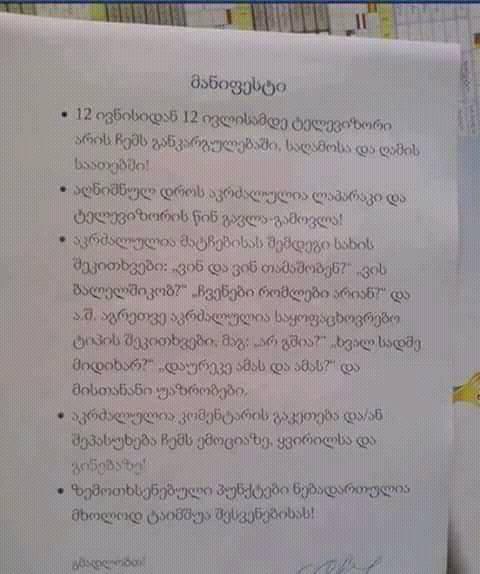 მანიფესტი
• 12 ივნისიდან 12 ივლისამდე ტელევიზორი
არის ჩემს განკარგულებაში, საღამოსა და ღამის
საათებში!
• აღნიშნულ დროს აკრძალულია ლაპარაკი და
ტელევიზორის წინ გავლა-გამოვლა!
• აკრძალულია მატჩებისას შემდეგი სახის
შეკითხვები: „ვინ და ვინ თამაშობენ?“ „ვის
ბალელშიკობ?“ „ჩვენები რომლები არიან?“ და
ა.შ. აგრეთვე აკრძალულია საყოფაცხოვრებო
ტიპის შეკითხვები, მაგ: „არ გშია?“ „ხვალ სადმე
მიდიხარ?“ „დაურეკე ამას და ამას?“ და
მისთანანი უაზრობები.
• აკრძალულია კომენტარის გაკეთება და/ან
შეპასუხება ჩემს ემოციაზე, ყვირილსა და
გინებაზე!
• ზემოთხსენებული პუნქტები ნებადართულია
მხოლოდ ტაიმშუა შესვენებისას!
გმადლობთ!